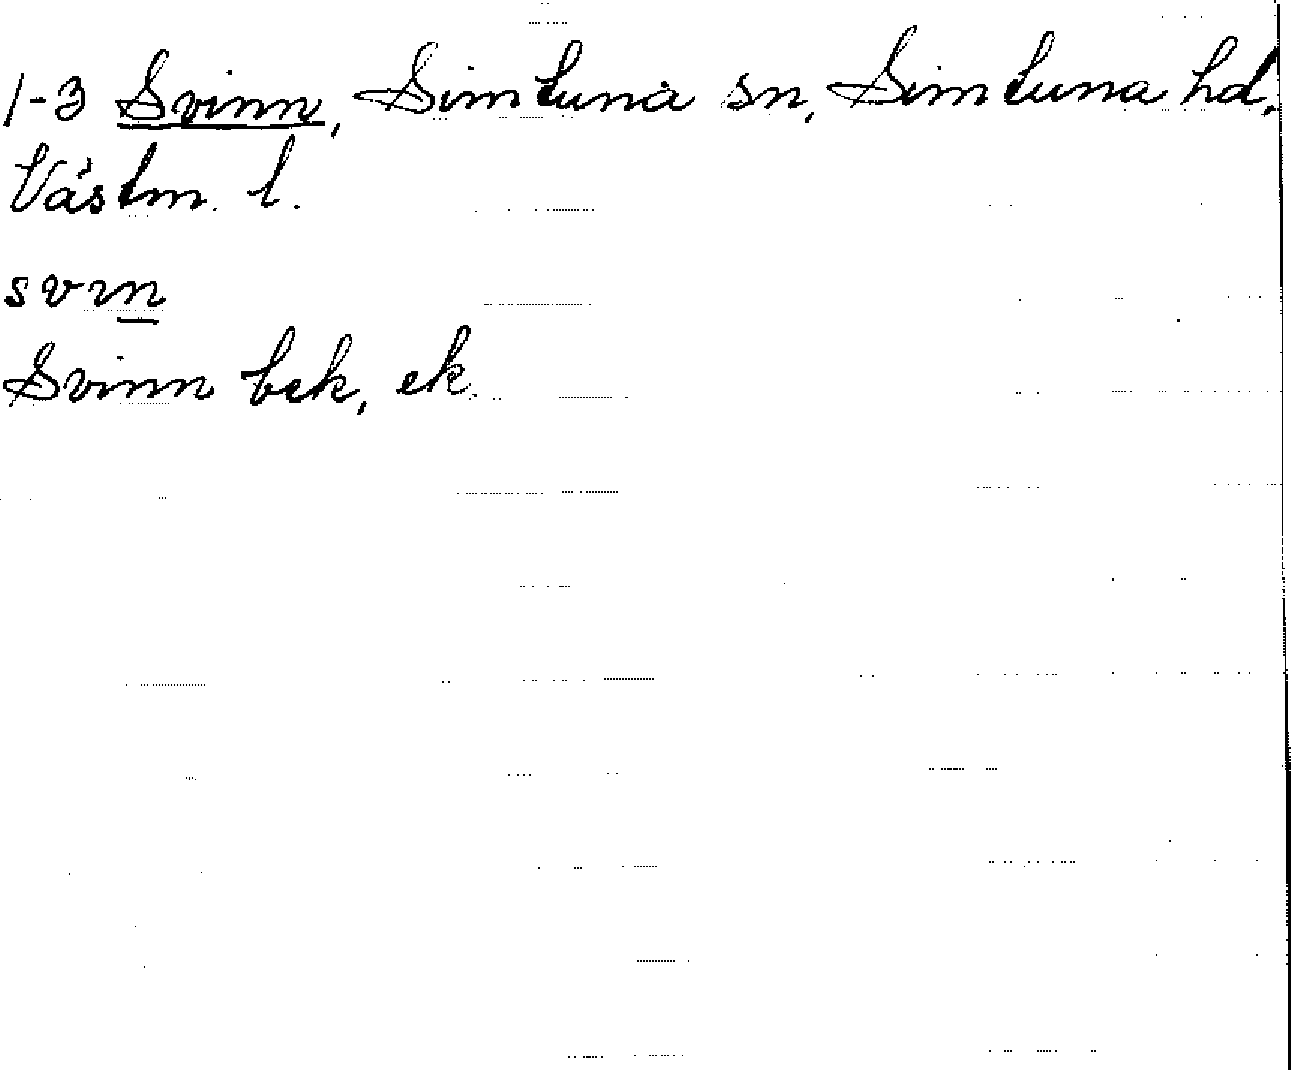 1-3 Svinn, Simtuna sn, Simtuna hd,
Västm. l.
svın
Svinn bek, ek.